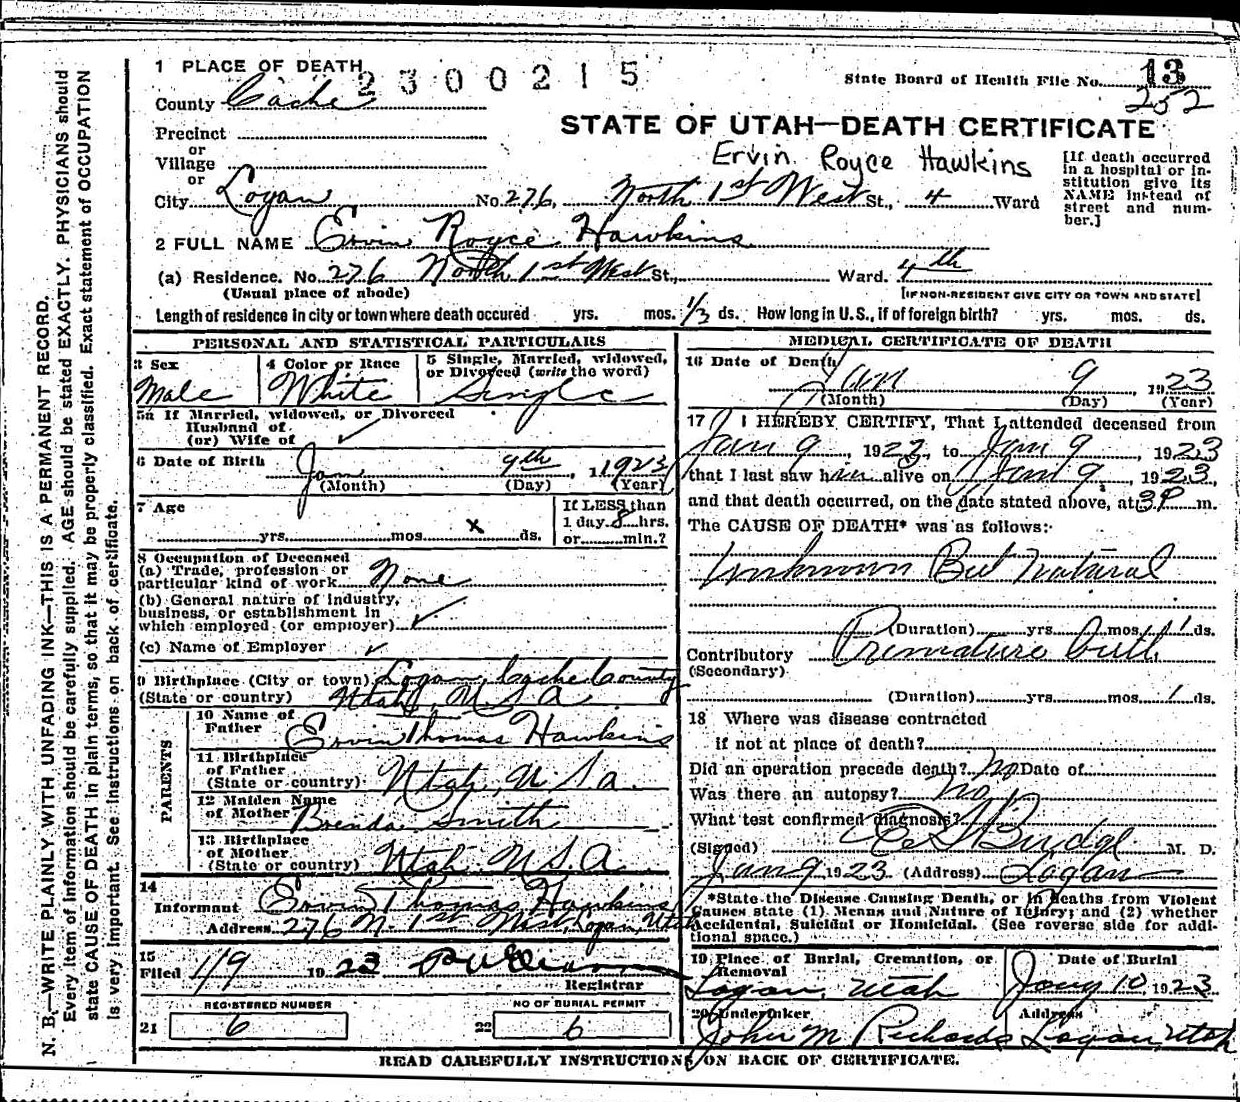 N. B.—WRITE PLAINLY WITH UNFADING INK—THIS IS A PERMANENT RECORD.
Every item of information should be carefully supplied. AGE should be stated EXACTLY. PHYSICIANS should
state CAUSE OF DEATH in plain terms, so that it may be properly classified. Exact statement of OCCUPATION
is very important. See instructions on back of certificate.
1 PLACE OF DEATH
2300215
State Board of Health File No. 13
252
County Cache
STATE OF UTAH—DEATH CERTIFICATE
Precinct
or
Village
or
Ervin Royce Hawkins
[If death occurred
in a hospital or in-
stitution give its
NAME instead of
street and num-
ber.]
City Logan No. 276, North 1st West St., 4 Ward
2 FULL NAME Ervin Royce Hawkins
(a) Residence. No. 276 North 1st West St., Ward. 4th
(Usual place of abode) [IF NON-RESIDENT GIVE CITY OR TOWN AND STATE]
Length of residence in city or town where death occured yrs. mos. 1/3 ds. How long in U.S., if of foreign birth? yrs. mos. ds.
PERSONAL AND STATISTICAL PARTICULARS
3 Sex
Male
4 Color or Race
White
5 Single, Married, widowed,
or Divorced (write the word)
Single
5a If Married, widowed, or Divorced
Husband of
(or) Wife of ✓
6 Date of Birth Jan 9th, 1 1923
(Month) (Day) (Year)
7 Age
yrs. mos. x ds.
If LESS than
1 day 8 hrs.
or min.?
8 Occupation of Deceased
(a) Trade, profession or
particular kind of work None
(b) General nature of industry,
business, or establishment in
which employed (or employer) ✓
(c) Name of Employer ✓
9 Birthplace (City or town) Logan, Cache County
(State or country) Utah, U.S.A
PARENTS
10 Name of
Father Ervin Thomas Hawkins
11 Birthplace
of Father
(State or country) Utah, U.S.a.
12 Maiden Name
of Mother Brenda Smith
13 Birthplace
of Mother
(State or country) Utah U.S.A.
14
Informant Ervin Thomas Hawkins
Address 276 N. 1st West, Logan, Utah
15
Filed 1/9 1923
Registrar
REGISTERED NUMBER
21 6
NO OF BURIAL PERMIT
22 6
MEDICAL CERTIFICATE OF DEATH
16 Date of Death
Jan 9, 1923
(Month) (Day) (Year)
17 I HEREBY CERTIFY, That I attended deceased from
Jan 9, 1923, to Jan 9, 1923
that I last saw him alive on Jan 9, 1923,
and that death occurred, on the date stated above, at 3P m.
The CAUSE OF DEATH* was as follows:
Unknown But natural
(Duration) yrs mos 1 ds.
Contributory Premature birth
(Secondary)
(Duration) yrs mos. 1 ds.
18 Where was disease contracted
if not at place of death?
Did an operation precede death? no Date of
Was there an autopsy? no
What test confirmed diagnosis?
(Signed) Budge M. D.
Jan 9 1923 (Address) Logan
*State the Disease Causing Death, or in deaths from Violent
Causes state (1) Menus and Nature of Injury; and (2) whether
Accidental, Suicidal or Homicidal. (See reverse side for addi-
tional space.)
19 Place of Burial, Cremation, or
Removal
Logan, Utah
Date of Burial
Jany 10, 1923
20 Undertaker
John M Richards
Address
Logan, Utah
READ CAREFULLY INSTRUCTIONS ON BACK OF CERTIFICATE.